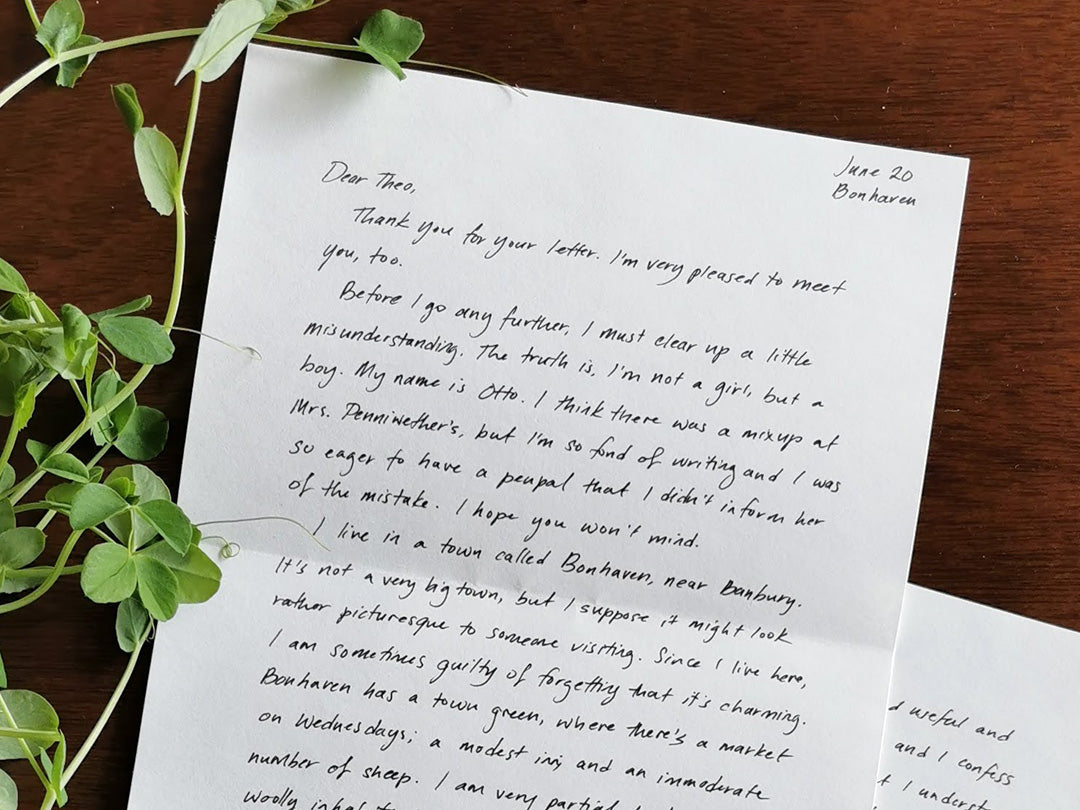 June 20
Bonhaven
Dear Theo,
Thank you for your letter. I'm very pleased to meet
you, too.
Before I go any further, I must clear up a little
misunderstanding. The truth is, I'm not a girl, but a
boy. My name is Otto. I think there was a mixup at
Mrs. Penniwether's, but I'm so fond of writing and I was
so eager to have a penpal that I didn't inform her
of the mistake. I hope you won't mind.
I live in a town called Bonhaven, near Banbury.
It's not a very big town, but I suppose it might look
rather picturesque to someone visiting. Since I live here,
I am sometimes guilty of forgetting that it's charming.
Bonhaven has a town green, where there's a market
on Wednesdays; a modest inn; and an immoderate
number of sheep. I am very partial
woolly
d useful and
and I confess
t I underst